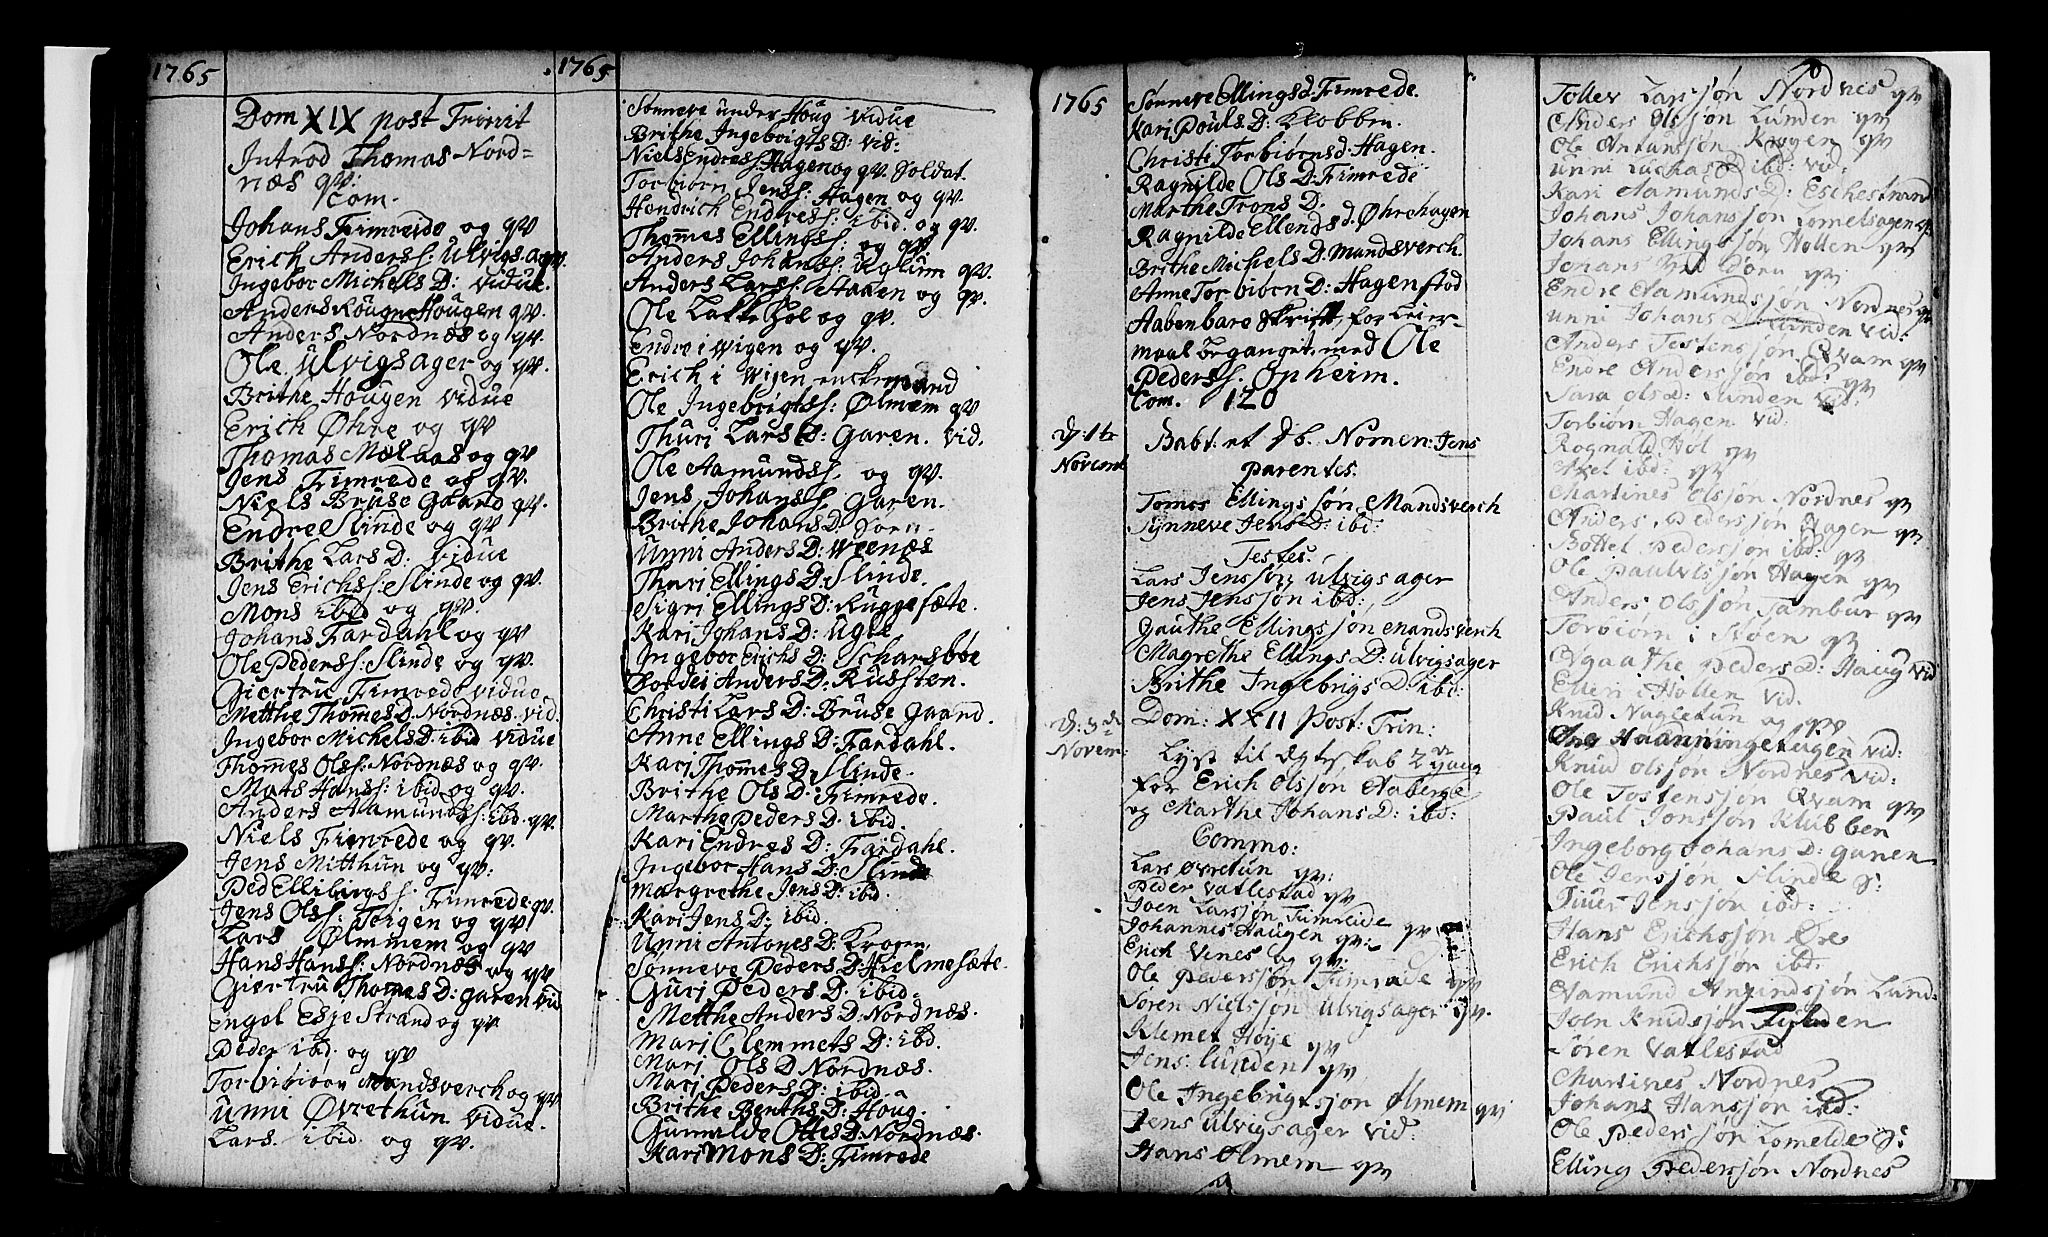 1765
Dom XIX post Trinit
Introd Thomas Nord=
næs qv:
Com.
Johans Frimreide og qv
Erich Anderss: Ulvigsag qv.
Ingebor Michels D: vidue.
Anders Rougne Hougen qv.
Anders Nordnæs og qv.
Ole Ulvigsager og qv.
Brithe Hougen vidue
Erich Øhre og qv
Thomas Mælaas og qv
Jens Frimrede og qv.
Niels Bruse Gaard qv.
Endre Slinde og qv
Brithe Lars D. vidue
Jens Erichss: Slinde og qv.
Mons ibid og qv.
Johans Fardahl og qv
Ole Pederss: Slinde og qv.
Giertru Frimrede vidue
Metthe Thommes D. Nordnæs. vid.
Ingebor Michels D. ibid vidue
Thommes Olss: Nordnæs og qv.
Mats Hanss: ibid og qv.
Anders Aamundss: ibd. qv.
Niels Frimrede og qv.
Jens Mitthun og qv:
Ped Ellibirgss: Frimrede qv.
Jens Olss: Torgen og qv
Lars Ølmmem og qv
Hans Hanss: Nordnæs og qv
Giertru Thomes D: Garen vid
Engel Esje Strand og qv
Peder ibd. og qv
Torbibiørn Mandsverch og qv
Unni Øvrethun vidue.
Lars. ibid. og qv.
1765
Sønneve under Houg vidue
Brithe Ingeborgts D: vid:
Niels Endress: Hagen og qv. Soldat.
Torbiørn Jenss: Hagen og qv.
Hendrich Endress: ibid. og qv.
Thommes Ellingss: og qv
Anders Johanss: Uglum qv.
Anders Larss: Aaaen og qv.
Ole Lakke Hol og qv.
Endre i Wigen og qv.
Erich i Wigen enckemand
Ole Ingebrigtss: Ølmem qv
Thuri Lars D: Garen. vid.
Ole Aamundss. og qv.
Jens Johanss. Garen.
Brithe Johans D. Dorn.
Unni Anders D: Weenæs
Thuri Ellings D: Slinde.
Sigri Ellings D: Ruggesæte.
Kari Johans D: Ugle
Ingebor Erichs D: Scharsbøe
Anders D: Russten.
Christi Lars D: Bruse Gaard.
Anne Ellings D: Fardahl.
Kari Thommes D: Slinde.
Brithe Ols D: Frimrede.
Marthe Peders D: ibid.
Kari Endres D: Fardahl.
Ingebor Hans D: Slinde
Margrethe Jens D: ibid.
Kari Jens D: ibid.
Unni Antones D: Krogen,
Sønneve Peders D: Hielmesæte.
Guri Peders D: ibid=
Metthe Anders D. Nordnæs.
Mari Clemmets D: ibd.
Mari Ols D Nordnæs.
Mari Peders D: ibid
Brithe Benths D: Houg.
Gunnilde Ottes D. Nordnæs.
Kari Mons D: Frimrede
1765
Sønneve Ellings d. Frimrede.
Kari Pouls D: Klobben.
Christi Torbiørns d. Hagen.
Ragnilde Ols D: Frimrede
Marthe Trons D:
Ragnilde Ellends d. Øhrehagen
Brithe Michels D: Mandsverch.
Anne Torbiørn D: Hagen stod
Aabenbare skrift, for Leier=
maal begaaget med Ole
Pederss. Opheim.
Com. 120
D: 1te
Novemb
Babt: et Db. Nomen: Jens
parentes.
Tomes Ellings søn Mandsverch
Synneve Jens D: ibd:
Testes.
Lars Jenssøn ulvigsager
Jens Jenssøn ibd:
Gauthe Ellingssøn Mandsverch
Magrethe Ellings D: ulvigsager
Brithe Ingebrigs D ibd:
D: 3de
Novem:
Dom: XXII Post: Trin:
Lyst til ægteskab 2den gang
for Erich Olssøn Aaberge
og Marthe Johans D: ibd:
Commo:
Lars Øvretun qv:
Peder Vatlestad qv
Joen Larssøn Fimreide qv
Johannes Haugen qv:
Erich Vines og qv:
Ole Pederssøn Fimrede qv
Søren Nielssøn Ulvigsager qv.
Klemet Høije qv
Jens. Lunden qv
Ole Ingebrigtssøn Ølmem qv
Jens Ulvigsager vid:
Hans Ølmem qv
Tollev Larssøn Nordnes qv
Anders Olssøn Lunden qv
Ole Antanssøn Krogen qv
Unni Luckas D ibd: vid:
Kari Aamunds D: Eschestrand
Johans Johanssøn Lomelsagen qv
Johans Ellingssøn Hollen qv
Johans Dorn qv
Endre Aamundssøn Nordnes qv
Unni Johans D: Lunden vid:
Anders Testenssøn Qvam qv
Endre Anderssøn ibd: qv
Sara Ols D: Lunden vid:
Torbiørn Hagen vid:
Rognald Hol qv
Axel ibd: qv
Martines Olssøn Nordnes qv
Anders Pederssøn Hagen qv
Bottel Pederssøn ibd: qv
Ole Paulvessøn Hagen qv
Anders Olssøn Tambur qv
Torbiørn i Støen qv
Agaathe Peders D: Haug vid
Elleri Hollen vid.
Knud Nagletun og qv
Haanningeteigen vid:
Knud Olssøn Nordnes vid:
Ole Tostenssøn Qvam qv
Paul Jonssøn Klubben
Ingeborg Johans D: garen
Ole Jenssøn Slinde S:
Siver Jenssøn ibd:
Hans Erichssøn Øre
Erich Erichssøn ibd.
Aamund Amundssøn Lund=
Joen Knudssøn
Søren Vatlestad
Martines Nordnes
Johans Hanssøn ibd:
Ole Pederssøn Lomelde S:
Elling Pederssøn Nordnes